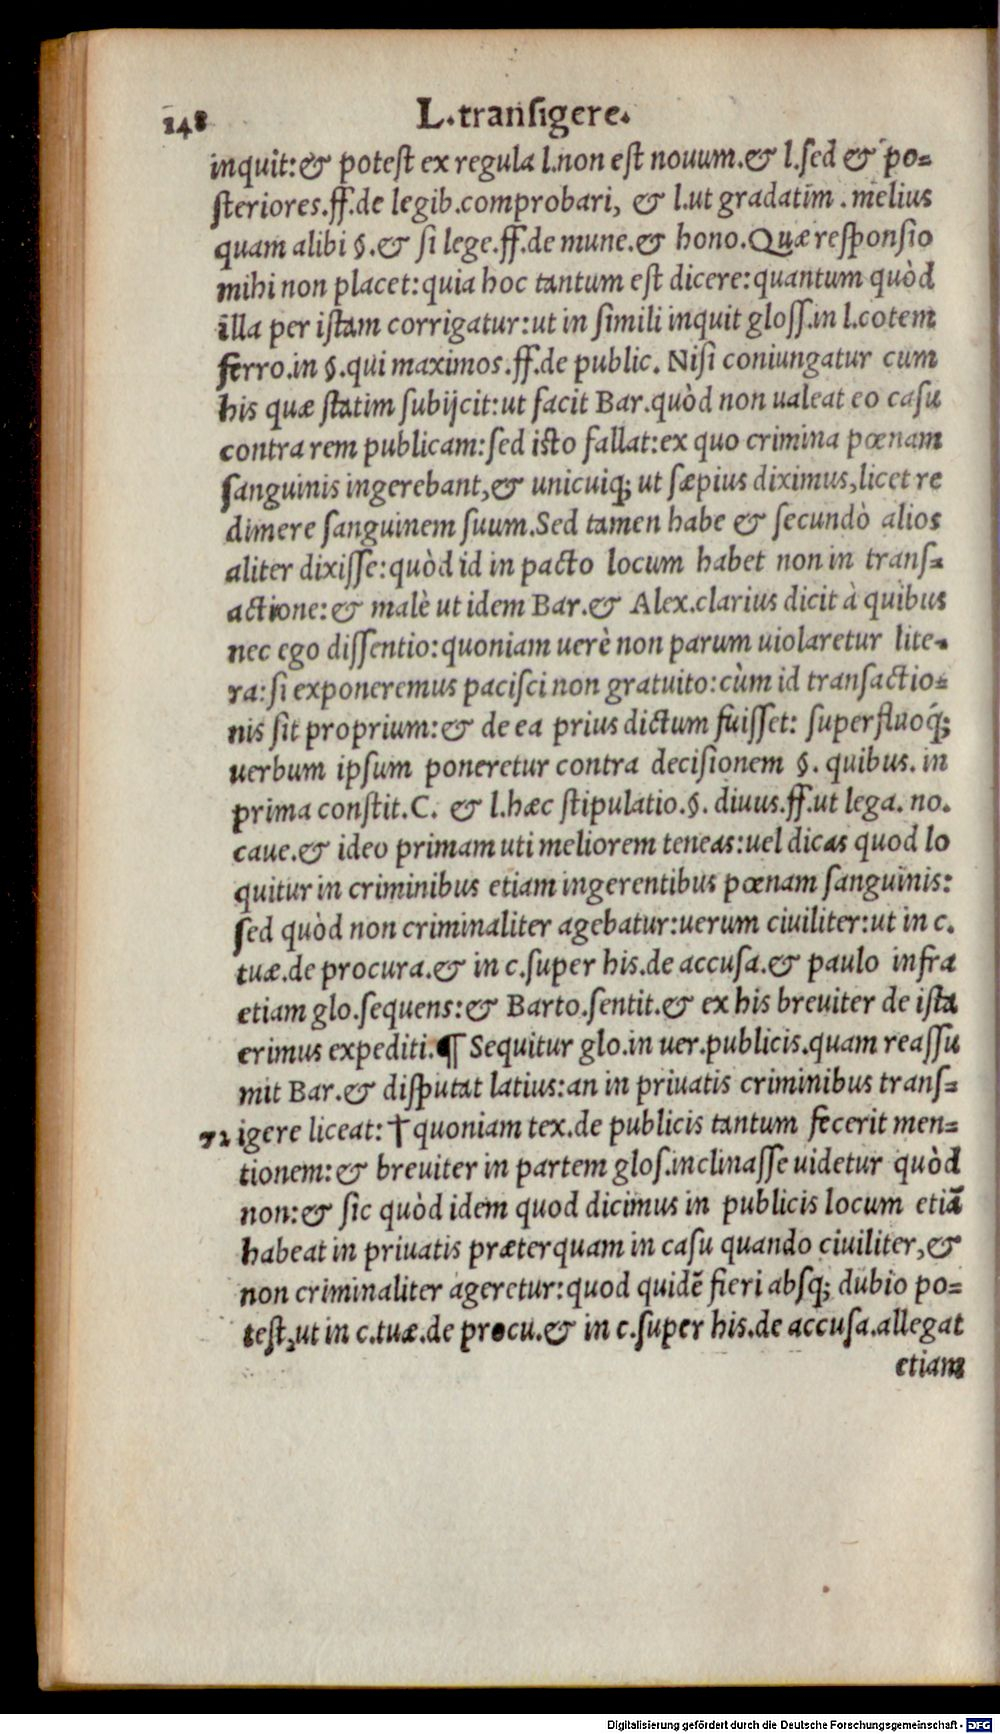 148 L.transigere.
inquit:& potest ex regula l.non est nouum.& l.sed & po=
steriores.ff.de legib.comprobari, & l.ut gradatim . melius
quam alibi §.& si lege.ff.de mune.& hono.Quæ responsio
mihi non placet:quia hoc tantum est dicere:quantum quòd
illa per istam corrigatur:ut in simili inquit gloss.in l.cotem
ferro.in §.qui maximos.ff.de public. Nisi coniungatur cum
his quæ statim subijcit:ut facit Bar.quòd non ualeat eo casu
contra rem publicam:sed isto fallat:ex quo crimina pœnam
sanguinis ingerebant,& unicuiq; ut sæpius diximus,licet re
dimere sanguinem suum.Sed tamen habe & secundò alios
aliter dixisse:quòd id in pacto locum habet non in trans=
actione:& malè ut idem Bar.& Alex.clarius dicit à quibus
nec ego dissentio:quoniam uerè non parum uiolaretur lite=
ra:si exponeremus pacisci non gratuito:cùm id transactio=
nis sit proprium:& de ea prius dictum fuisset: superfluoq́;
uerbum ipsum poneretur contra decisionem §. quibus. in
prima constit.C. & l.hæc stipulatio.§. diuus.ff.ut lega. no.
caue.& ideo primam uti meliorem teneas:uel dicas quod lo
quitur in criminibus etiam ingerentibus pœnam sanguinis:
sed quòd non criminaliter agebatur:uerum ciuiliter:ut in c.
tuæ.de procura.& in c.super his.de accusa.& paulo infra
etiam glo.sequens:& Barto.sentit.& ex his breuiter de ista
erimus expediti.¶ Sequitur glo.in uer.publicis.quam reassu
mit Bar.& disputat latius:an in priuatis criminibus trans=
72 igere liceat: † quoniam tex.de publicis tantum fecerit men=
tionem:& breuiter in partem glos.inclinasse uidetur quòd
non:& sic quòd idem quod dicimus in publicis locum etiã
habeat in priuatis præterquam in casu quando ciuiliter,&
non criminaliter ageretur:quod quidẽ fieri absq; dubio po=
test,ut in c.tuæ.de procu.& in c.super his.de accusa.allegat
etiam
Digitalisierung gefördert durch die Deutsche Forschungsgemeinschaft - DFG